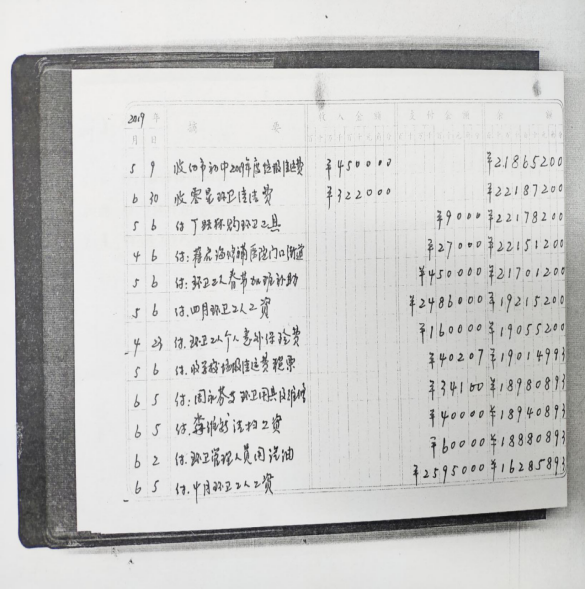 2019 年
月 日 摘 要 收入金额 支付金额 余 额
5 9 收 市初中2019年度垃圾清运费 ¥450000 ¥21865200
6 30 收零星环卫清洁费 ¥322000 ¥22187200
5 6 付 购环卫工具 ¥9000 ¥22178200
4 6 付: 门口街道 ¥27000 ¥22151200
5 6 付:环卫工人春节加班补助 ¥450000 ¥21701200
5 6 付.四月环卫工人工资 ¥2486000 ¥19215200
4 23 付.环卫工人个人意外保险费 ¥160000 ¥19055200
5 6 付.收 垃圾清运费税票 ¥40207 ¥19014993
6 5 付: 环卫用具及维修 ¥34100 ¥18980893
6 5 付. 工资 ¥40000 ¥18940893
6 2 付.环卫管理人员用汽油 ¥60000 ¥18880893
6 5 付. 月环卫工人工资 ¥2595000 ¥16285893